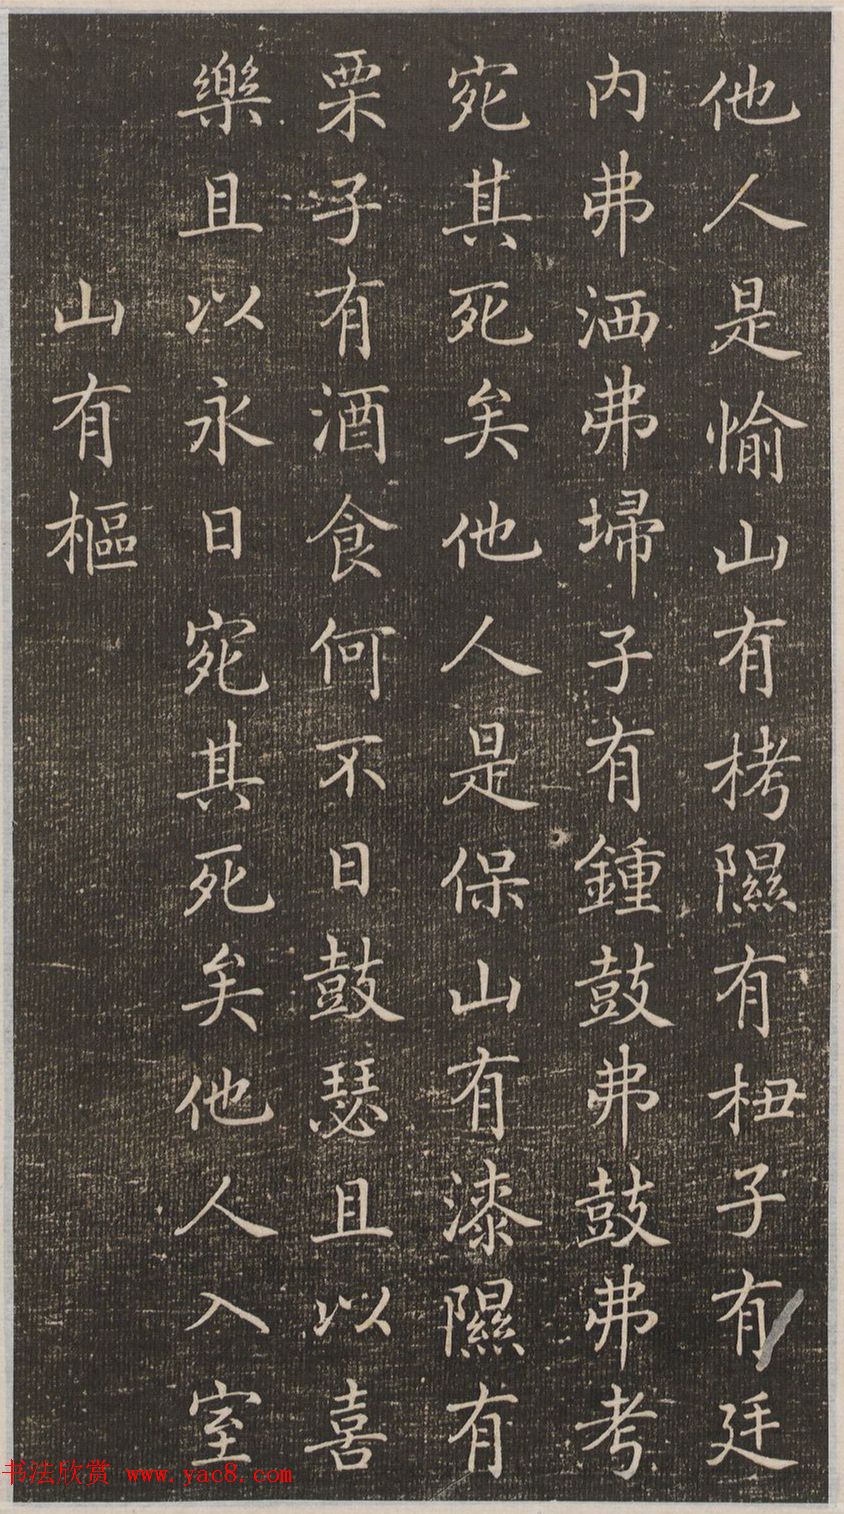 他人是愉山有栲隰有杻子有廷
内弗洒弗埽子有鍾鼓弗鼓弗考
宛其死矣他人是保山有漆隰有
栗子有酒食何不日鼓瑟且以喜
樂且以永日宛其死矣他人入室
山有樞
书法欣赏 www.yac8.com